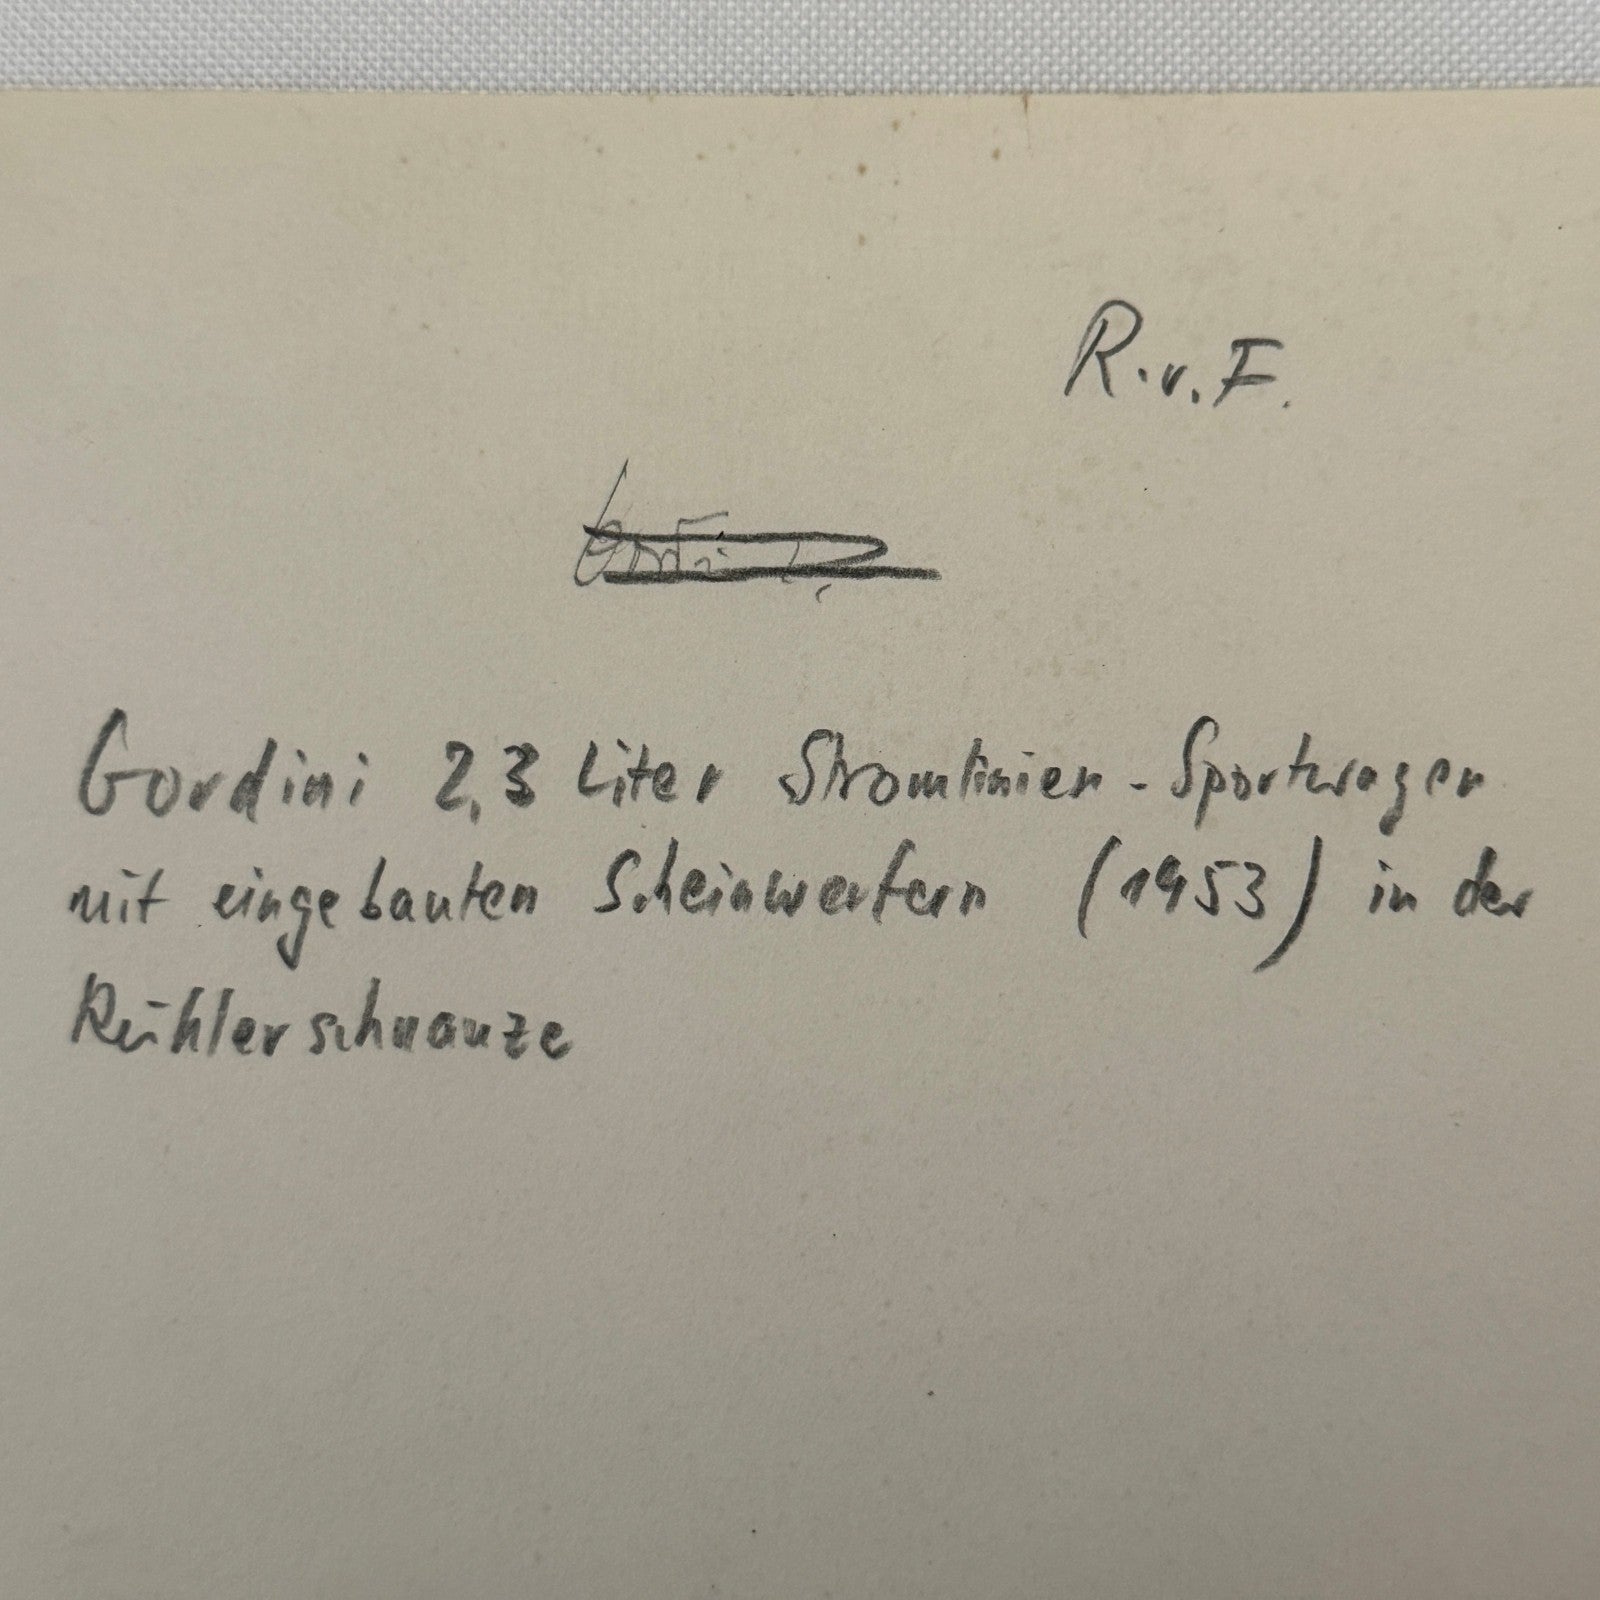 R.v.F.
Gordini 2,3 Liter Stromlinien-Sportwagen
mit eingebauten Scheinwerfern (1953) in der
Kühlerschnauze